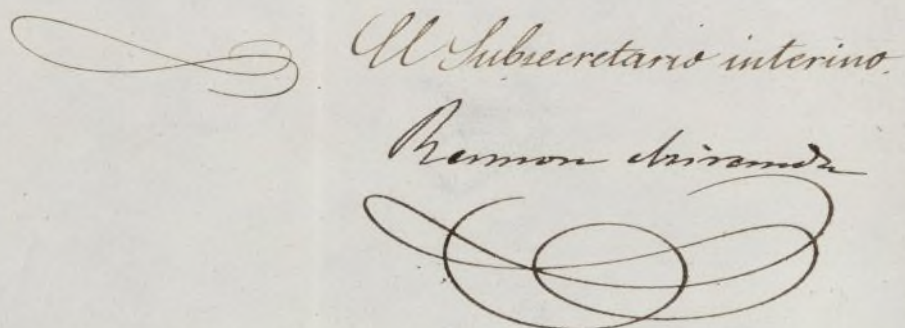 El Subsecretario interino.
Ramon Miranda